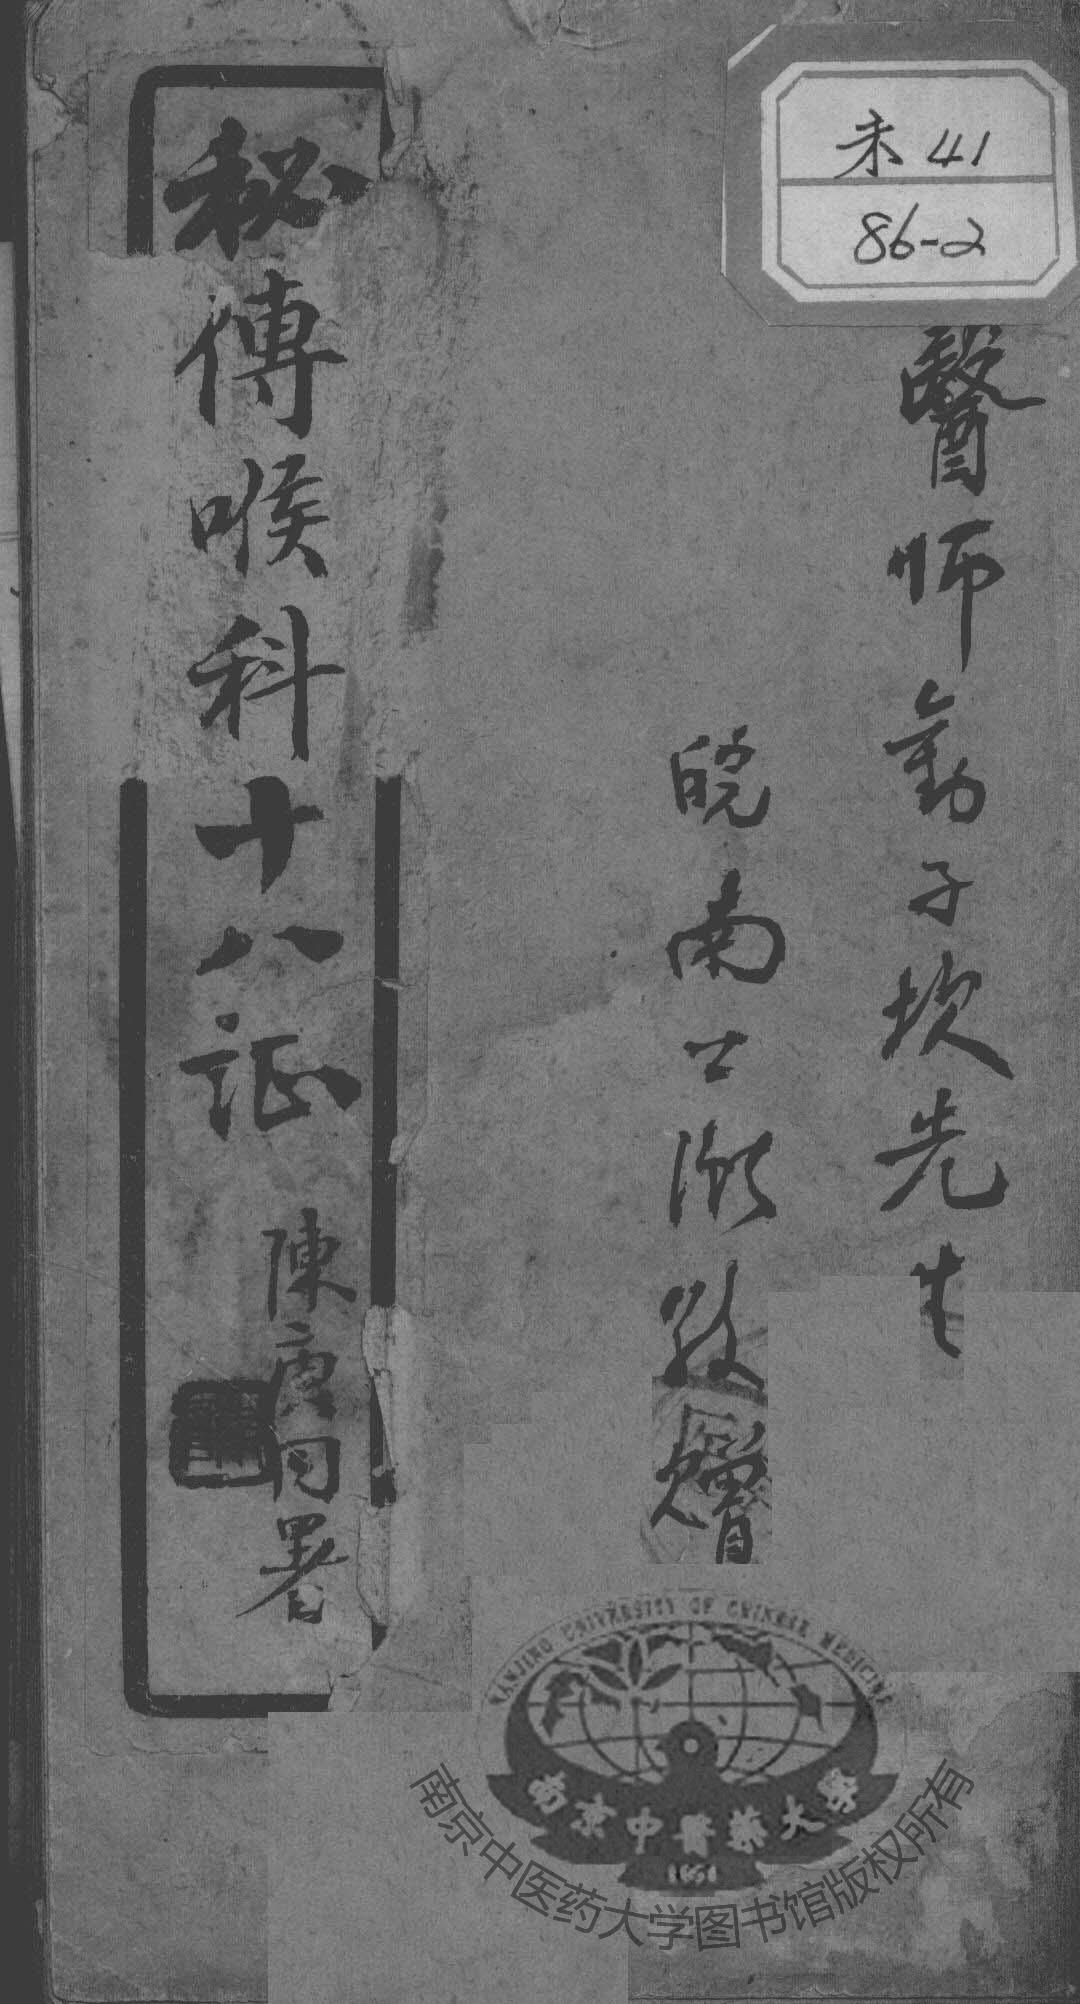 未 41
86-2
醫師勤子坎先生
皖南
敬贈
秘傳喉科十八证
陳
署
NANJING UNIVERSITY OF CHINESE MEDICINE
南京中醫藥大學
1954
南京中医药大学图书馆版权所有